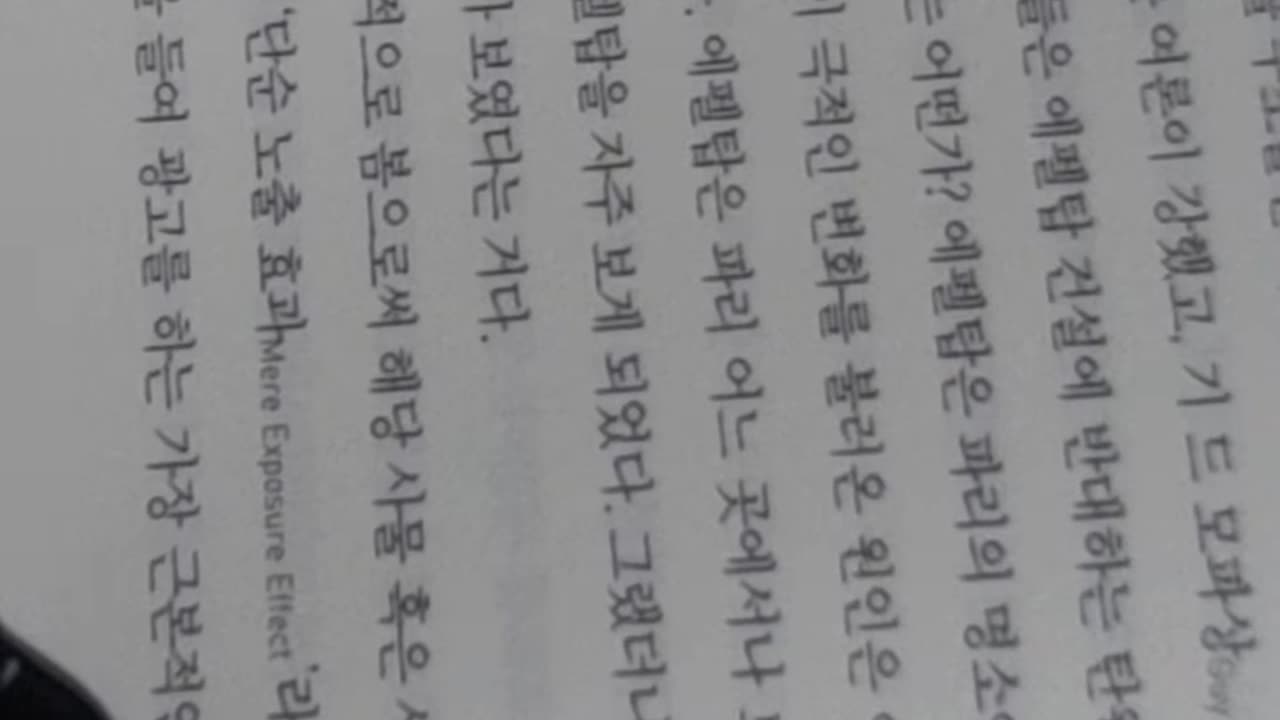 여론이 강했고, 기 드 모파상Guy
들은 에펠탑 건설에 반대하는
는 어떤가? 에펠탑은 파리의 명소
극적인 변화를 불러온 원인은
에펠탑은 파리 어느 곳에서나
펠탑을 자주 보게 되었다. 그랬더니
보였다는 거다.
적으로 봄으로써 해당 사물 혹은
'단순 노출 효과Mere Exposure Effect'라
들여 광고를 하는 가장 근본적인